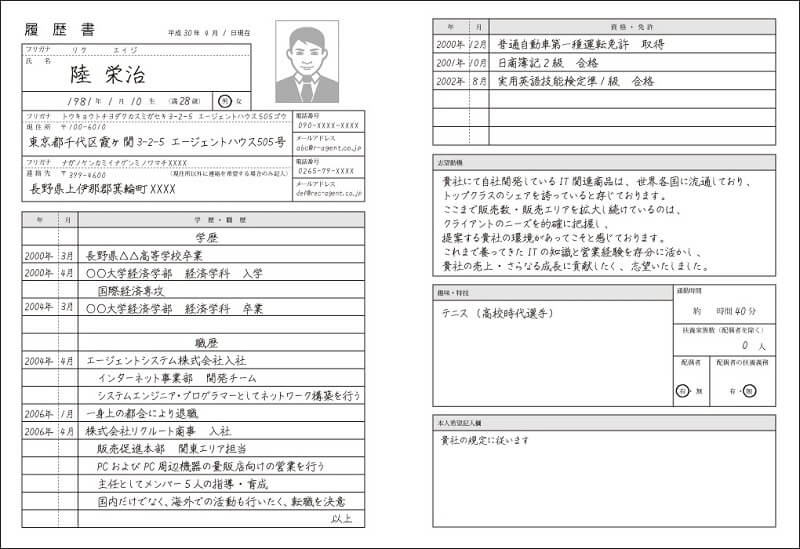 履歴書
平成30年4月1日現在
フリガナ リク エイジ
氏名
陸 栄治
1981年1月10生 (満28歳) 男・女
フリガナ トウキョウトチヨダクカスミガセキ3-2-5 エージェントハウス505ゴウ
現住所 〒100-6010
東京都千代区霞ヶ関3-2-5 エージェントハウス505号
電話番号
090-XXXX-XXXX
メールアドレス
abc@r-agent.co.jp
フリガナ ナガノケンカミイナゲンミノワマチXXXX
連絡先 〒399-4600 (現住所以外に連絡を希望する場合のみ記入)
長野県上伊那郡箕輪町XXXX
電話番号
0265-79-XXXX
メールアドレス
def@rec-agent.co.jp
年 月 学歴・職歴
学歴
2000年 3月 長野県△△高等学校卒業
2000年 4月 〇〇大学経済学部 経済学科 入学
国際経済専攻
2004年 3月 〇〇大学経済学部 経済学科 卒業
職歴
2004年 4月 エージェントシステム株式会社入社
インターネット事業部 開発チーム
システムエンジニア・プログラマーとしてネットワーク構築を行う
2006年 1月 一身上の都合により退職
2006年 4月 株式会社リクルート商事 入社
販売促進本部 関東エリア担当
PCおよびPC周辺機器の量販店向けの営業を行う
主任としてメンバー5人の指導・育成
国内だけでなく、海外での活動も行いたく、転職を決意
以上
年 月 資格・免許
2000年 12月 普通自動車第一種運転免許 取得
2001年 10月 日商簿記2級 合格
2002年 8月 実用英語技能検定準1級 合格
志望動機
貴社にて自社開発しているIT関連商品は、世界各国に流通しており、
トップクラスのシェアを誇っていると存じております。
ここまで販売数・販売エリアを拡大し続けているのは、
クライアントのニーズを的確に把握し、
提案する貴社の環境があってこそと感じております。
これまで養ってきたITの知識と営業経験を存分に活かし、
貴社の売上・さらなる成長に貢献したく、志望いたしました。
趣味・特技
テニス (高校時代選手)
通勤時間
約 時間40分
扶養家族数(配偶者を除く)
0 人
配偶者
有・無
配偶者の扶養義務
有・無
本人希望記入欄
貴社の規定に従います